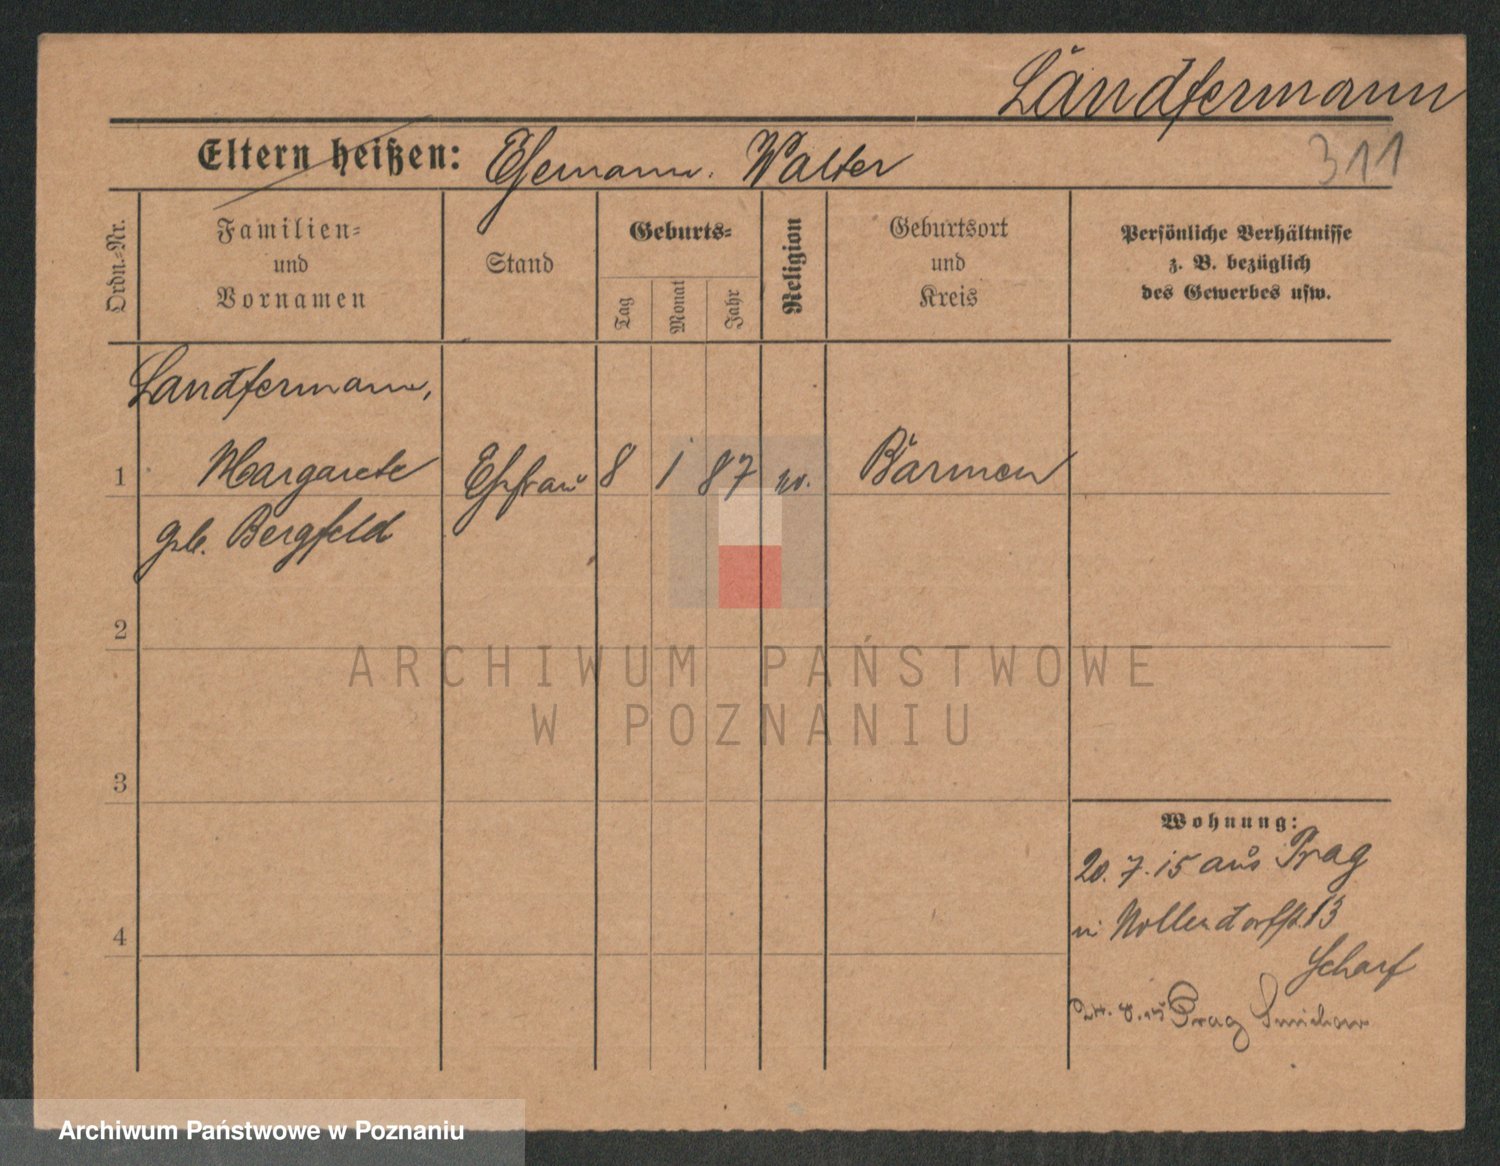 Landfermann
Eltern heißen: Ehemann. Walter
311
Ordn.-Nr.
Familien-
und
Vornamen
Stand
Geburts-
Tag
Monat
Jahr
Religion
Geburtsort
und
Kreis
Persönliche Verhältnisse
z. B. bezüglich
des Gewerbes usw.
Landfermann,
1 Margarete Ehefrau 8 1 87 ev. Barmen
geb. Bergfeld
2
3
4
Wohnung:
20. 7. 15 aus Prag
Nollendorfstr. 13
Scharf
24. 8. 15 Prag Smichow
ARCHIWUM PAŃSTWOWE
W POZNANIU
Archiwum Państwowe w Poznaniu